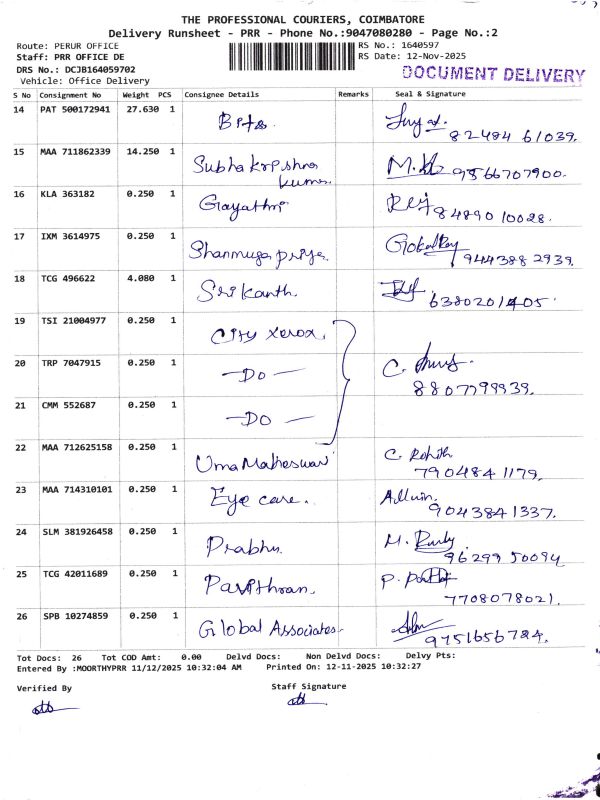 THE PROFESSIONAL COURIERS, COIMBATORE
Delivery Runsheet - PRR - Phone No.:9047080280 - Page No.:2
Route: PERUR OFFICE
RS No.: 1640597
Staff: PRR OFFICE DE
RS Date: 12-Nov-2025
DRS No.: DCJB164059702
DOCUMENT DELIVERY
Vehicle: Office Delivery
S No Consignment No Weight PCS Consignee Details Remarks Seal & Signature
14 PAT 500172941 27.630 1
82484 61039.
15 MAA 711862339 14.250 1 Subhakrishna
kumar 9566707900.
16 KLA 363182 0.250 1 Gayathri 84890 10028.
17 IXM 3614975 0.250 1 Shanmuga priya. Gokul Raj
944388 2939.
18 TCG 496622 4.080 1 Srikanth.
6380201405
19 TSI 21004977 0.250 1 City xerox,
20 TRP 7047915 0.250 1 —Do— C.
8807799939.
21 CMM 552687 0.250 1 —Do—
22 MAA 712625158 0.250 1 Uma Maheswari C. Rohith
7904841179.
23 MAA 714310101 0.250 1 Eye care.
9043841337.
24 SLM 381926458 0.250 1 Prabhu. M.
96299 50094
25 TCG 42011689 0.250 1 Pavithran. P.
7708078021.
26 SPB 10274859 0.250 1 Global Associates
9751656784.
Tot Docs: 26 Tot COD Amt: 0.00 Delvd Docs: Non Delvd Docs: Delvy Pts:
Entered By :MOORTHYPRR 11/12/2025 10:32:04 AM Printed On: 12-11-2025 10:32:27
Verified By
Staff Signature